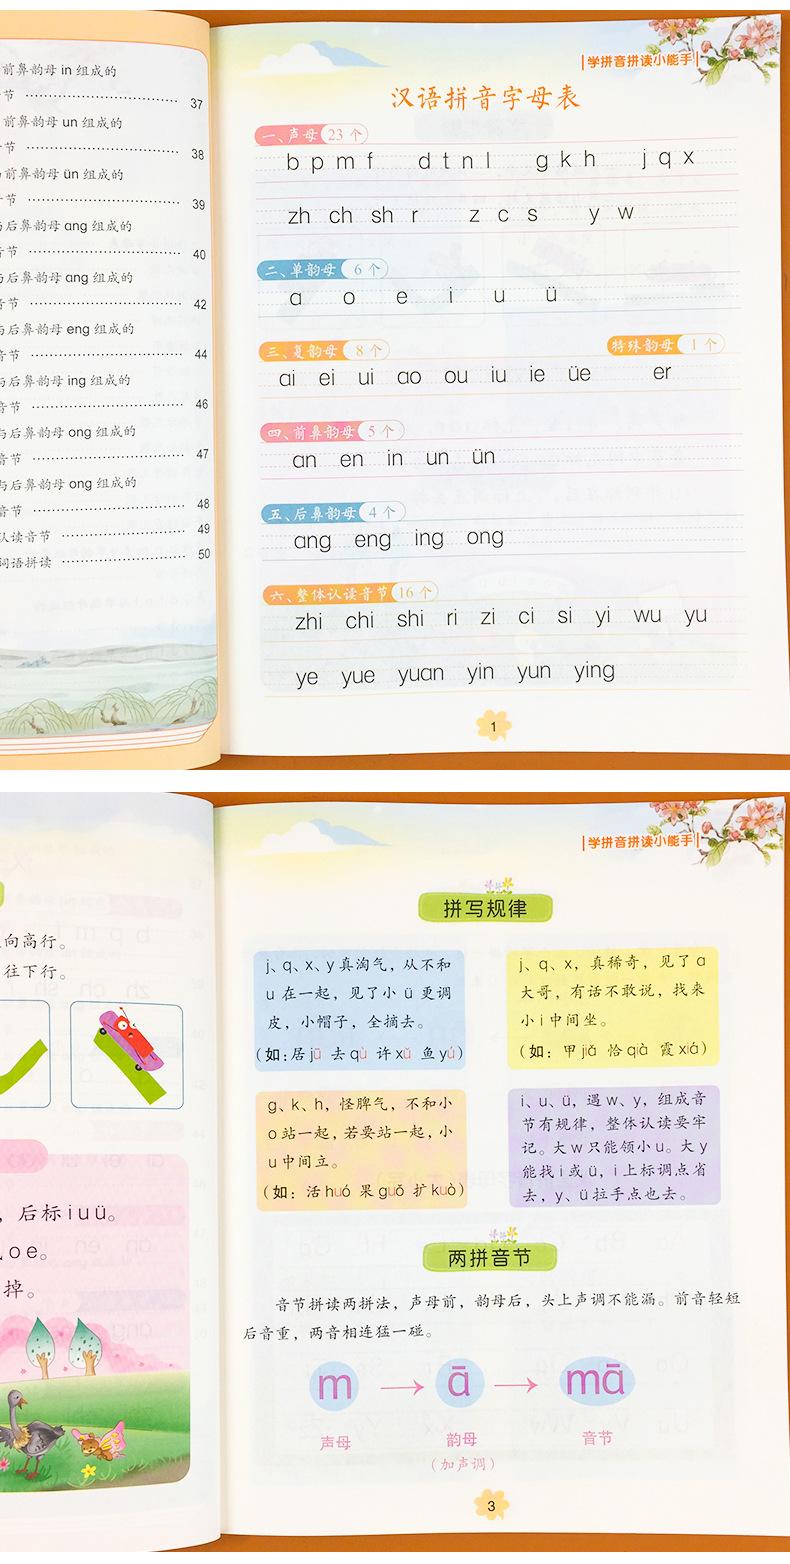 前鼻韵母 in 组成的
节 37
前鼻韵母 un 组成的
节 38
前鼻韵母 ün 组成的
音节 39
与后鼻韵母 ang 组成的
音节 40
与后鼻韵母 ang 组成的
音节 42
与后鼻韵母 eng 组成的
音节 44
与后鼻韵母 ing 组成的
音节 46
与后鼻韵母 ong 组成的
音节 47
与后鼻韵母 ong 组成的
音节 48
认读音节 49
词语拼读 50
学拼音拼读小能手
汉语拼音字母表
一、声母 23 个
b p m f d t n l g k h j q x
zh ch sh r z c s y w
二、单韵母 6 个
a o e i u ü
三、复韵母 8 个 特殊韵母 1 个
ai ei ui ao ou iu ie üe er
四、前鼻韵母 5 个
an en in un ün
五、后鼻韵母 4 个
ang eng ing ong
六、整体认读音节 16 个
zhi chi shi ri zi ci si yi wu yu
ye yue yuan yin yun ying
1
向高行。
往下行。
，后标 i u ü。
o e。
掉。
学拼音拼读小能手
拼写规律
j、q、x、y 真淘气，从不和
u 在一起，见了小 ü 更调
皮，小帽子，全摘去。
（如：居 jū 去 qù 许 xǔ 鱼 yú）
j、q、x，真稀奇，见了 a
大哥，有话不敢说，找来
小 i 中间坐。
（如：甲 jiǎ 恰 qià 霞 xiá）
g、k、h，怪脾气，不和小
o 站一起，若要站一起，小
u 中间立。
（如：活 huó 果 guǒ 扩 kuò）
i、u、ü，遇 w、y，组成音
节有规律，整体认读要牢
记。大 w 只能领小 u。大 y
能找 i 或 ü，i 上标调点省
去，y、ü 拉手点也去。
两拼音节
音节拼读两拼法，声母前，韵母后，头上声调不能漏。前音轻短
后音重，两音相连猛一碰。
m → ā → mā
声母 韵母 音节
（加声调）
3